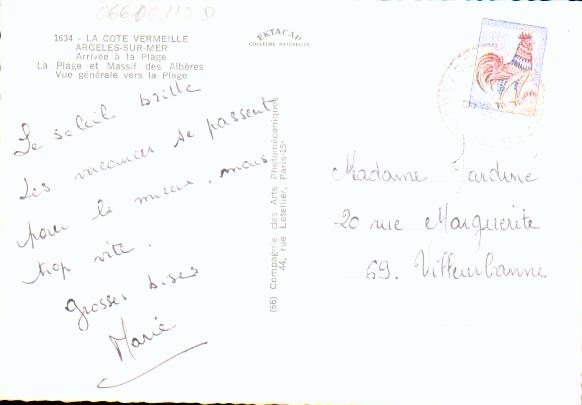 066 00 110 D
1634 - LA COTE VERMEILLE
ARGELES-SUR-MER
Arrivée à la Plage
La Plage et Massif des Albères
Vue générale vers la Plage
EKTACAP
COULEURS NATURELLES
Le soleil brille
Les vacances se passent
pour le mieux, mais
trop vite.
Grosses bises
Marie
(66) Compagnie des Arts Photomécaniques
44, rue Letellier, Paris-15e
Madame Jardiné
20 rue Marguerite
69. Villeurbanne